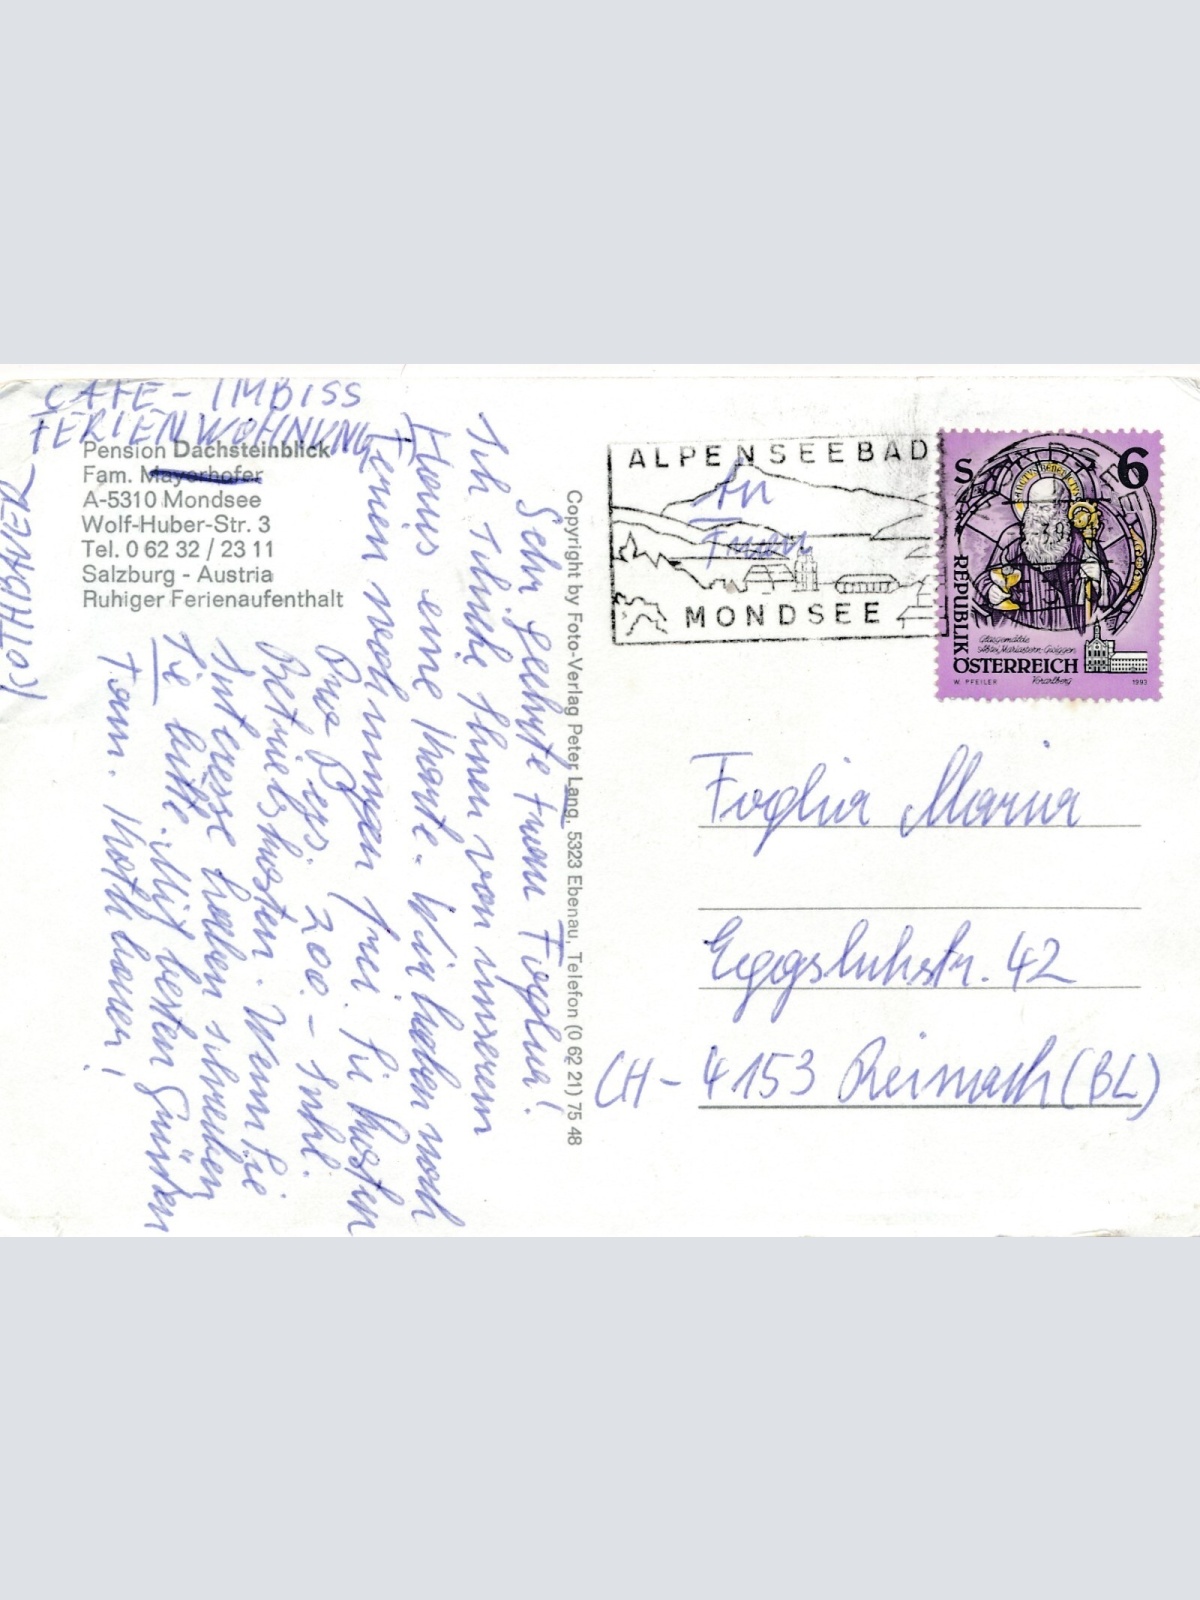 CAFE - IMBISS
FERIENWOHNUNG
Pension Dachsteinblick
Fam. Mayerhofer
A-5310 Mondsee
Wolf-Huber-Str. 3
Tel. 0 62 32 / 23 11
Salzburg - Austria
Ruhiger Ferienaufenthalt
Sehr geehrte Frau Foglia!
Ich schicke Ihnen von unserem
Haus eine Karte. Wir haben noch
Ferienwohnungen frei. Sie kosten
pro Tag S. 200.- inkl.
Betriebskosten. Wenn Sie
Interesse haben schreiben
Sie bitte. Mit besten Grüßen
Fam. Kothbauer!
Copyright by Foto-Verlag Peter Lang, 5323 Ebenau, Telefon (0 62 21) 75 48
ALPENSEEBAD
MONDSEE
An
Frau
S 6
REPUBLIK
ÖSTERREICH
Glasgemälde
Abtei Mariastern-Gwiggen
Vorarlberg
W. PFEILER
1993
Foglia Maria
CH - 4153 Reinach (BL)